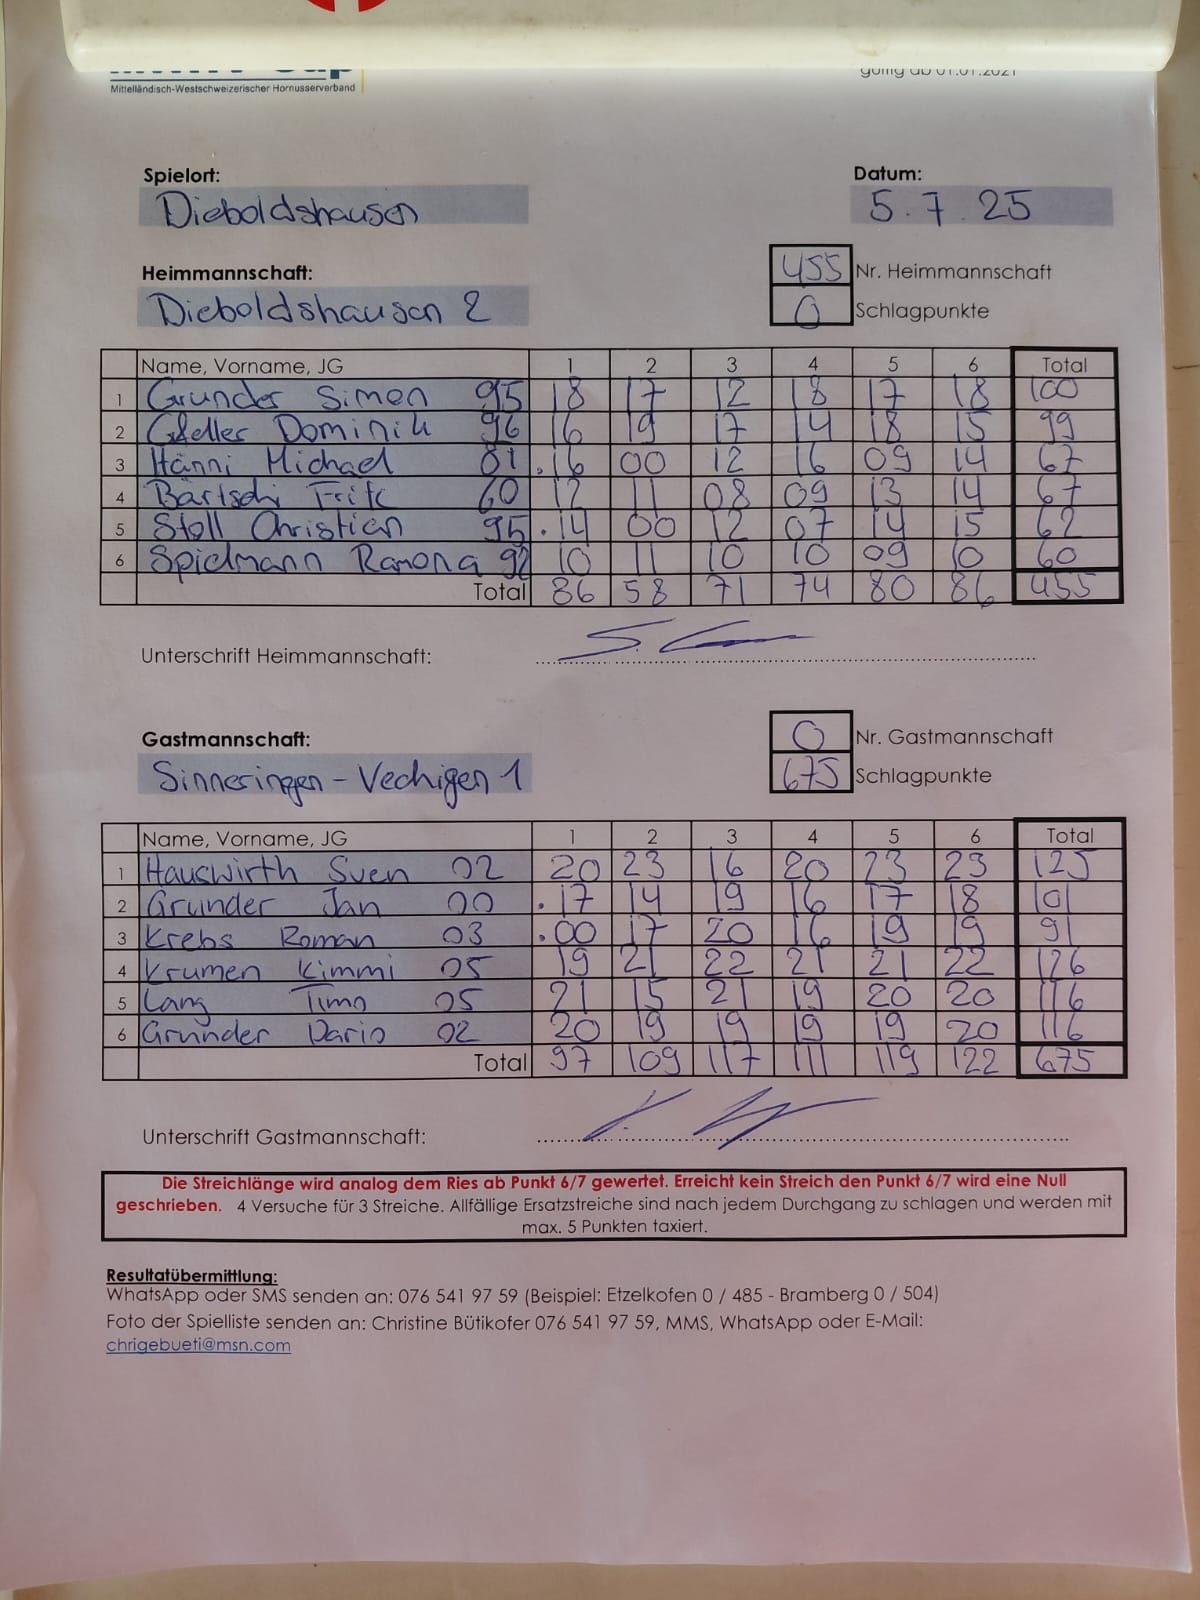 Mittelländisch-Westschweizerischer Hornusserverband
gültig ab 01.01.2021
Spielort: Datum:
Dieboldshausen 5.7.25
Heimmannschaft: 455 Nr. Heimmannschaft
Dieboldshausen 2 0 Schlagpunkte
Name, Vorname, JG 1 2 3 4 5 6 Total
1 Grunder Simon 95 18 17 12 18 17 18 100
2 Gfeller Dominik 96 16 19 17 14 18 15 99
3 Hänni Michael 81 .16 00 12 16 09 14 67
4 Bärtschi Fritz 60 12 11 08 09 13 14 67
5 Stoll Christian 95 .14 00 12 07 14 15 62
6 Spielmann Ramona 92 10 11 10 10 09 10 60
Total 86 58 71 74 80 86 455
Unterschrift Heimmannschaft:
Gastmannschaft: 0 Nr. Gastmannschaft
Sinneringen - Vechigen 1 675 Schlagpunkte
Name, Vorname, JG 1 2 3 4 5 6 Total
1 Hauswirth Sven 02 20 23 16 20 23 23 125
2 Grunder Jan 00 .17 14 19 16 17 18 101
3 Krebs Roman 03 .00 17 20 16 19 19 91
4 Krumen Kimmi 05 19 21 22 21 21 22 126
5 Lang Timo 05 21 15 21 19 20 20 116
6 Grunder Dario 02 20 19 19 19 19 20 116
Total 97 109 117 111 119 122 675
Unterschrift Gastmannschaft:
Die Streichlänge wird analog dem Ries ab Punkt 6/7 gewertet. Erreicht kein Streich den Punkt 6/7 wird eine Null
geschrieben. 4 Versuche für 3 Streiche. Allfällige Ersatzstreiche sind nach jedem Durchgang zu schlagen und werden mit
max. 5 Punkten taxiert.
Resultatübermittlung:
WhatsApp oder SMS senden an: 076 541 97 59 (Beispiel: Etzelkofen 0 / 485 - Bramberg 0 / 504)
Foto der Spielliste senden an: Christine Bütikofer 076 541 97 59, MMS, WhatsApp oder E-Mail:
chrigebueti@msn.com